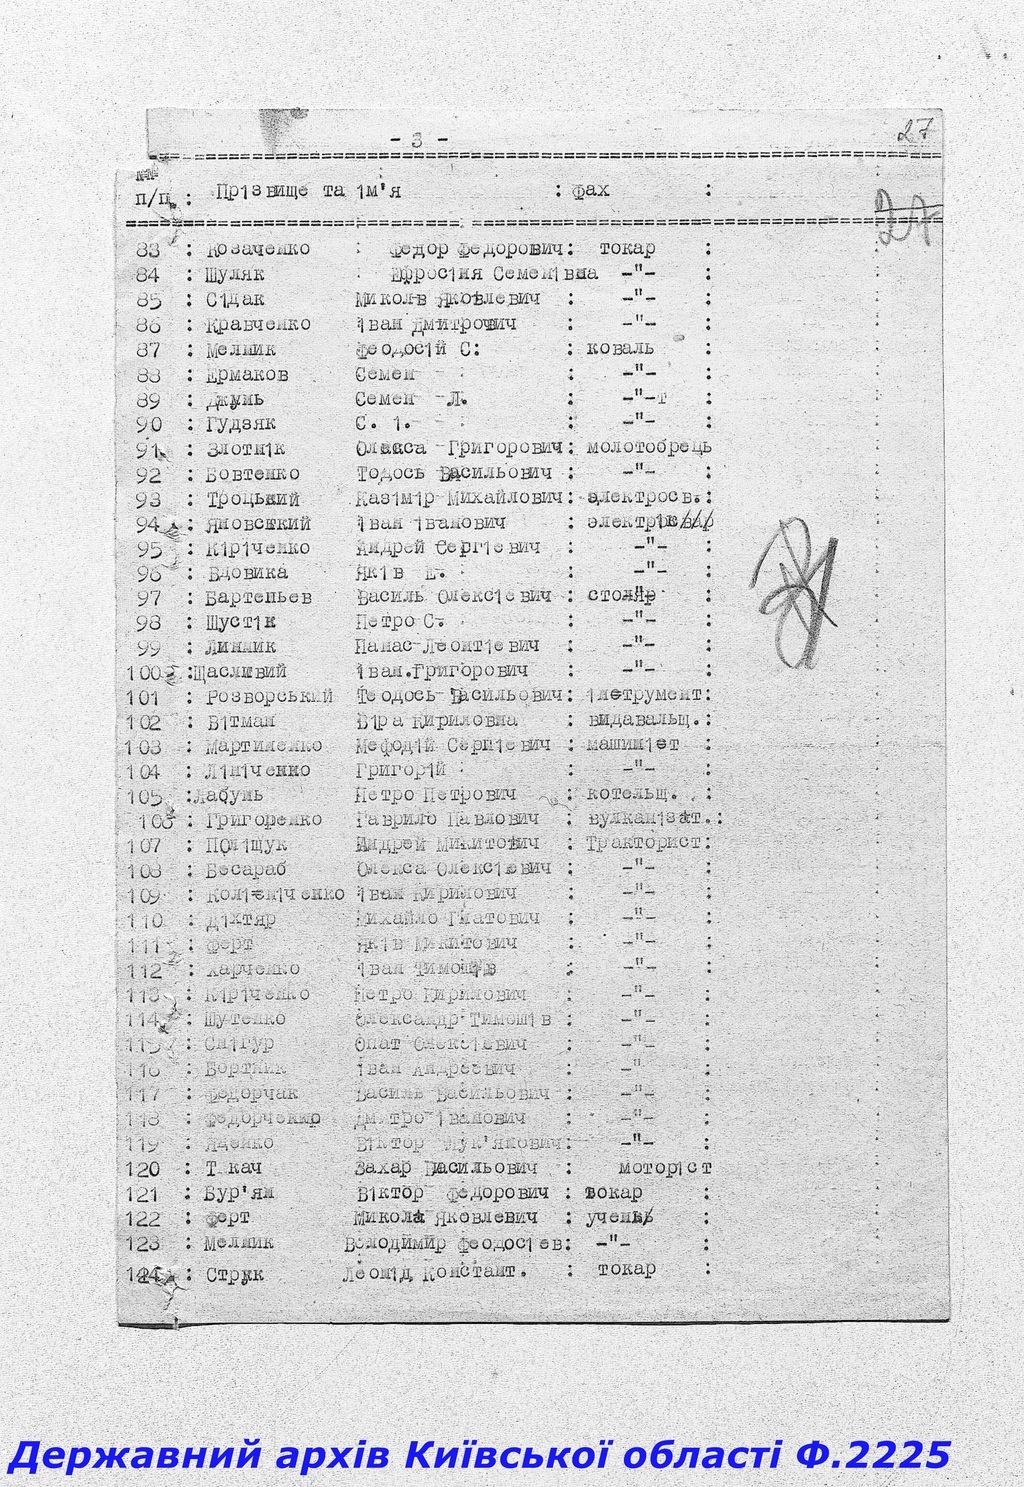 - 3 -
27
№№
п/п. : Прізвище та ім'я : фах :
27
83 : Козаченко : Федор Федорович: токар :
84 : Шуляк Ефросіния Семенівна -"- :
85 : Сідак Микола Яковлевич : -"- :
86 : Кравченко Іван Дмитрович : -"- :
87 : Мелник Феодосій С: : коваль :
88 : Ермаков Семен : -"- :
89 : Джунь Семен Л. : -"-т :
90 : Гудзяк С. І. : -"- :
91 : Злотнік Олекса Григорович: молотобрець
92 : Бовтенко Тодось Васильович : -"- :
93 : Троцький Казімір Михайлович: электросв.:
94 : Яновський Іван Іванович : электрік
95 : Кіріченко Андрей Сергіевич : -"- :
96 : Вдовика Яків : -"- :
97 : Бартеньев Василь Олексіевич : столяр :
98 : Шустік Петро С. : -"- :
99 : Линник Панас Леонтіевич : -"- :
100 :Щасливий Іван.Григорович : -"- :
101 : Розворський Теодось Васильович: інструмент:
102 : Вітман Віра Кириловна : видавальщ.:
103 : Мартиненко Мефодій Сергіевич : машиніст :
104 : Лініченко Григорій : -"- :
105 :Лабунь Петро Петрович : котельщ. :
106 : Григоренко Гаврило Павлович : вулканізат.:
107 : Поліщук Андрей Микитович : Тракторист:
108 : Бесараб Олекса Олексіевич : -"- :
109 : Колісніченко Іван Кирилович : -"- :
110 : Діхтяр Михайло Гнатович : -"- :
111 : Ферт Яків Микитович : -"- :
112 : Харченко Іван Тимошів : -"- :
113 : Кіріченко Петро Кирилович : -"- :
114 : Шутенко Олександр Тимошів : -"- :
115 : Снігур Опат Олексіевич : -"- :
116 : Бортник Іван Андреевич : -" :
117 : Федорчак Василь Васильович : -"- :
118 : Федорченко Дмитро Іванович : -"- :
119 : Яценко Віктор Лук'янович: -"- :
120 : Ткач Захар Васильович : моторіст
121 : Бур'ян Віктор Федорович : токар :
122 : Ферт Микола Яковлевич : учень :
123 : Мелник Володимир Феодосіев: -"- :
124 : Струк Леонід Констант. : токар :
Державний архів Київської області Ф.2225